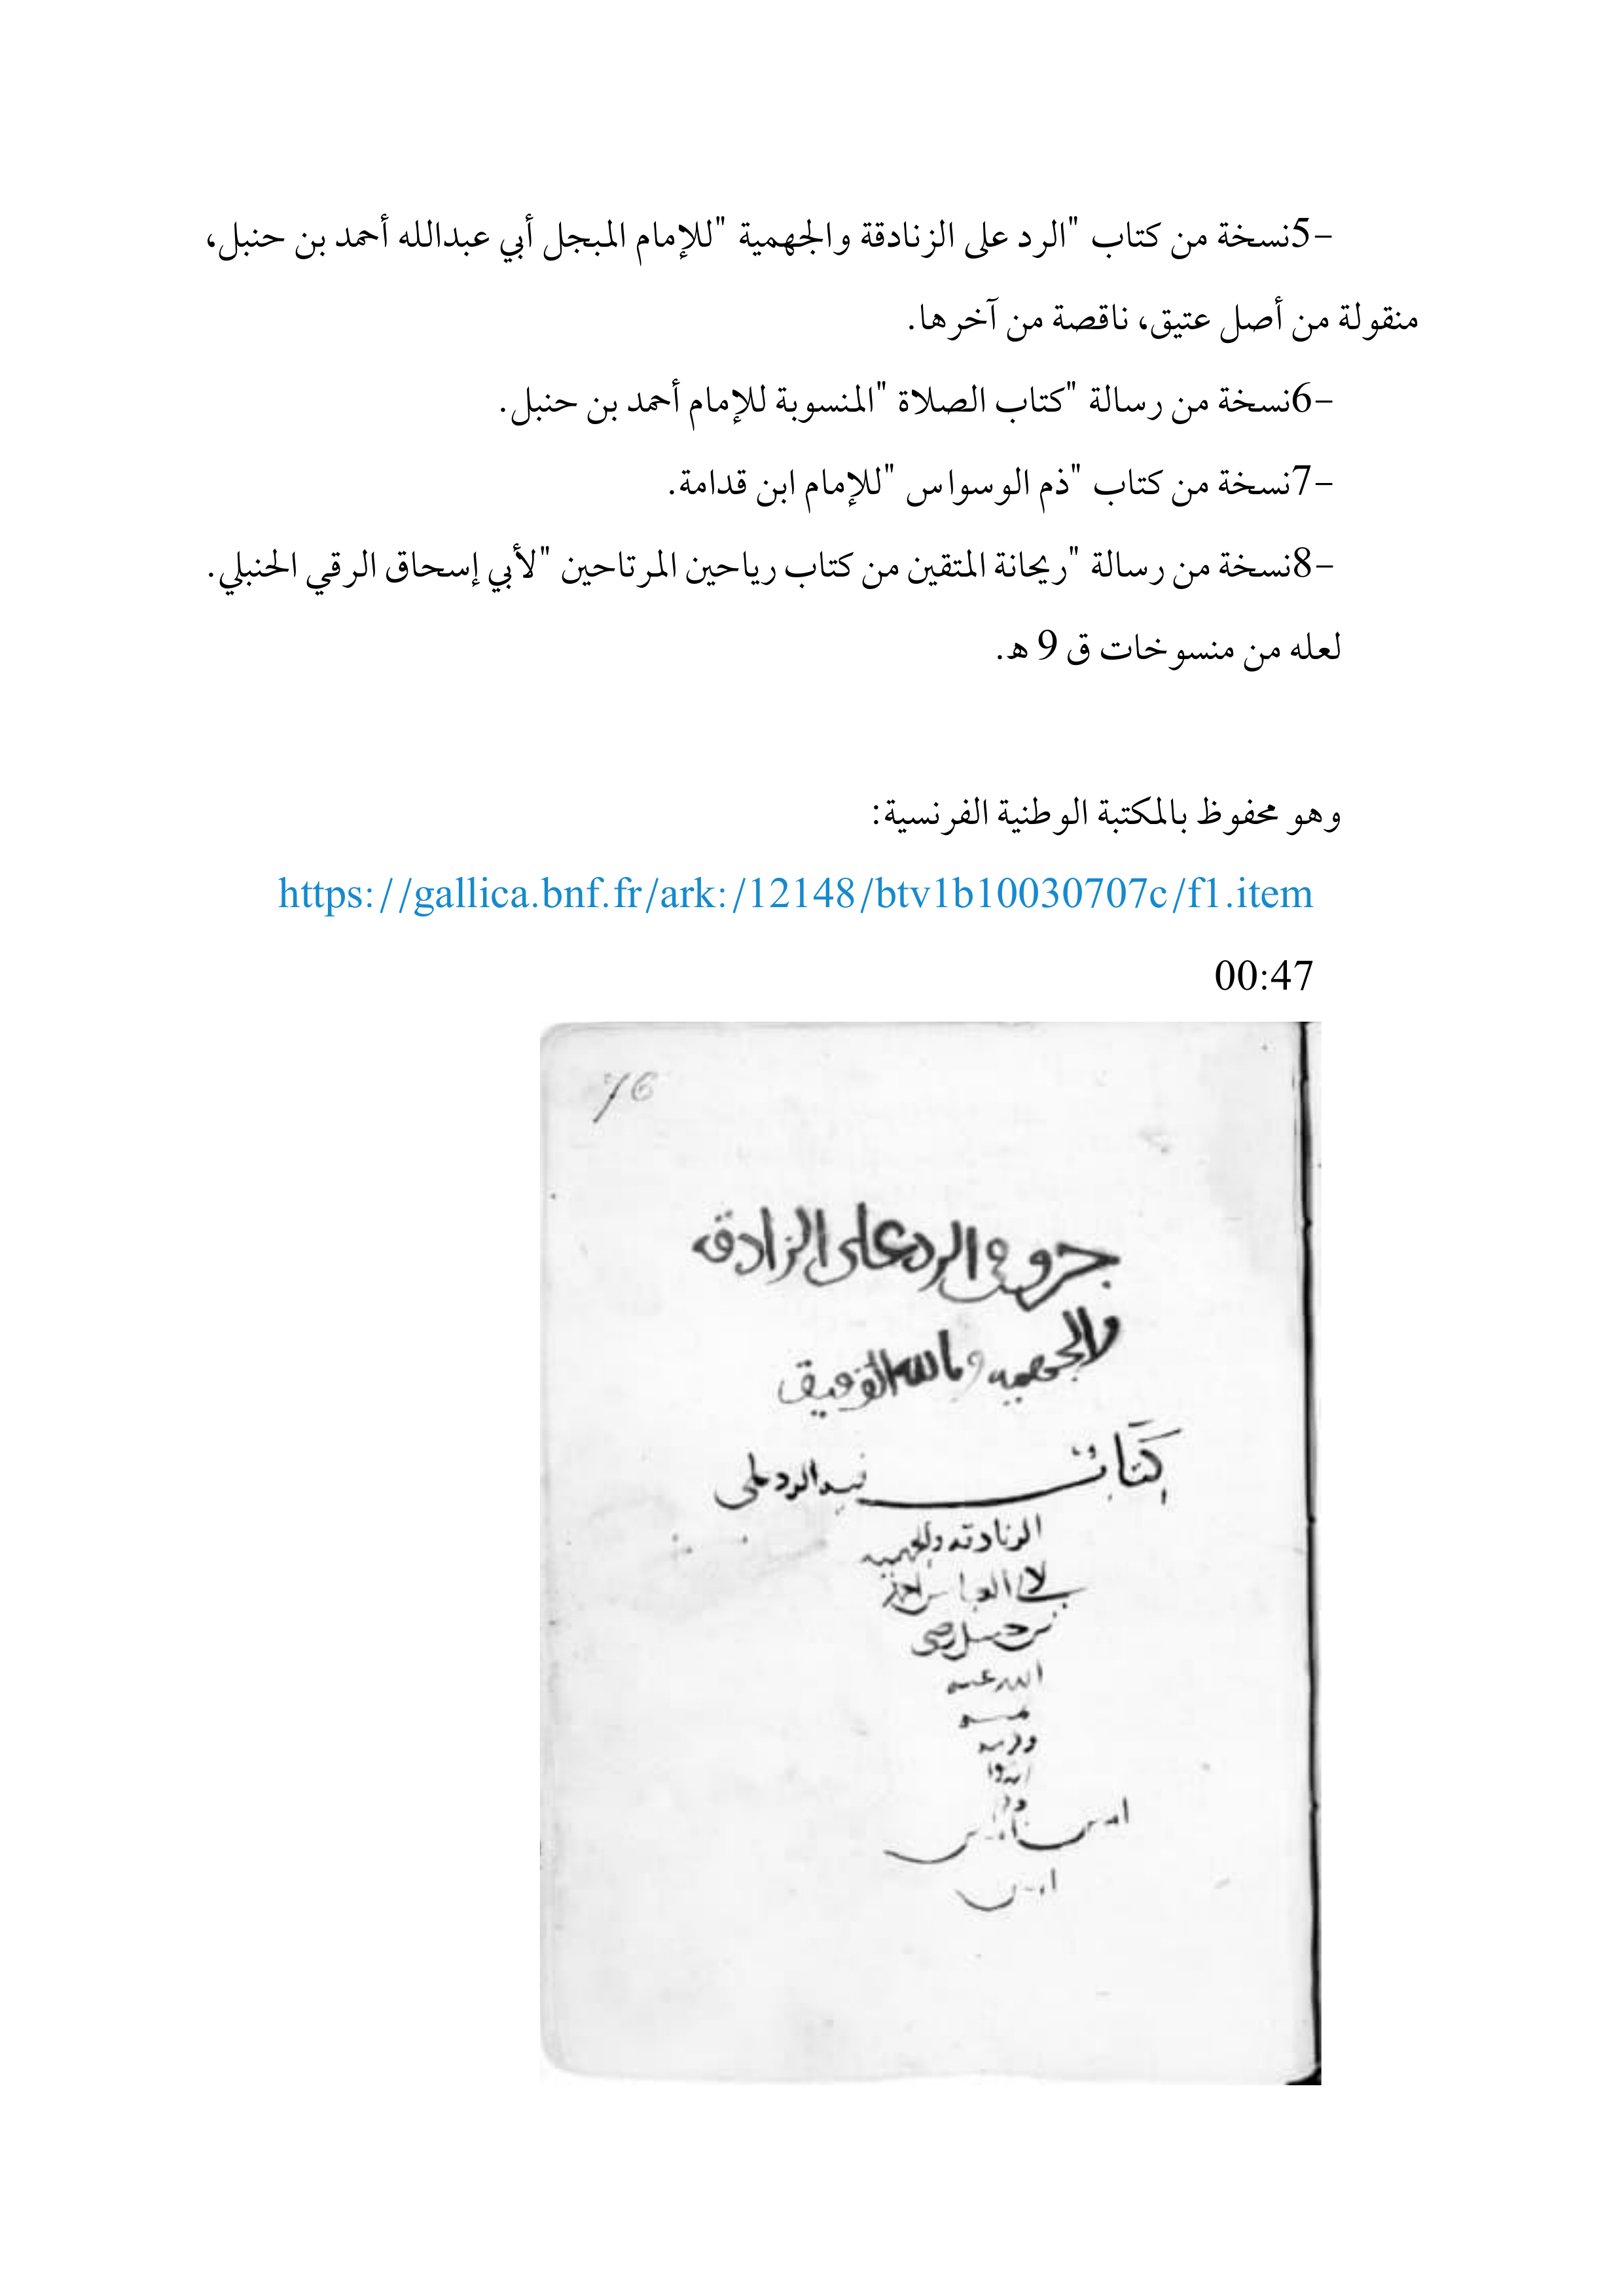 5-نسخة من كتاب "الرد على الزنادقة والجهمية "للإمام المبجل أبي عبدالله أحمد بن حنبل،
منقولة من أصل عتيق، ناقصة من آخرها.
6-نسخة من رسالة "كتاب الصلاة "المنسوبة للإمام أحمد بن حنبل.
7-نسخة من كتاب "ذم الوسواس "للإمام ابن قدامة.
8-نسخة من رسالة "ريحانة المتقين من كتاب رياحين المرتاحين "لأبي إسحاق الرقي الحنبلي.
لعله من منسوخات ق 9 ه.
وهو محفوظ بالمكتبة الوطنية الفرنسية:
https://gallica.bnf.fr/ark:/12148/btv1b10030707c/f1.item
00:47
76
الرد على الزادقه
والجهميه وبالله التوفيق
كتاب فيه الرد على
الزنادقه والجهميه
لابي العباس احمد
بن حنبل رضي
الله عنه
امين
امين